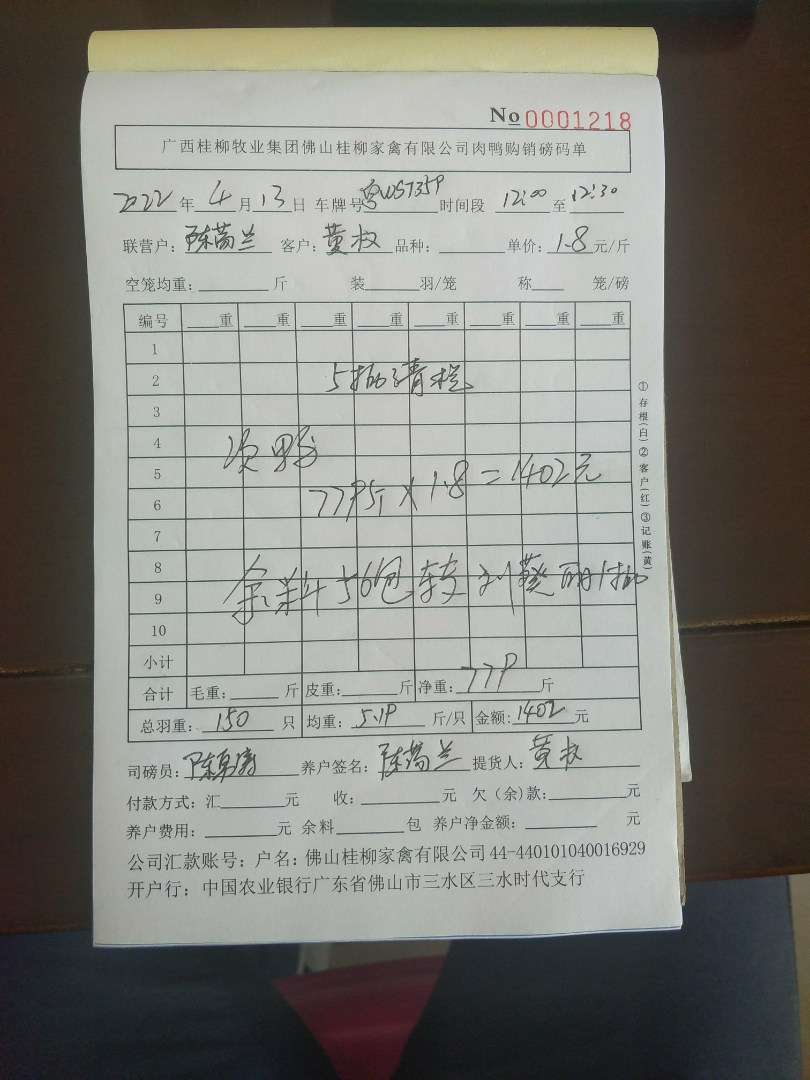 No 0001218
广西桂柳牧业集团佛山桂柳家禽有限公司肉鸭购销磅码单
2022年4月13日 车牌号 时间段 12:00至12:30
联营户: 陈 兰 客户: 黄权 品种: 单价: 1.8元/斤
空笼均重: 斤 装 羽/笼 称 笼/磅
编号 重 重 重 重 重 重 重 重
1
2 5批清栏
3
4 次鸭
5 779斤×1.8=1402元
6
7
8 余料56包转刘葵丽1批
9
10
小计
合计 毛重: 斤 皮重: 斤 净重: 779斤
总羽重: 150只 均重: 5.19斤/只 金额: 1402元
司磅员: 陈 养户签名: 陈 兰 提货人: 黄权
付款方式: 汇 元 收: 元 欠(余)款: 元
养户费用: 元 余料 包 养户净金额: 元
公司汇款账号: 户名: 佛山桂柳家禽有限公司 44-440101040016929
开户行: 中国农业银行广东省佛山市三水区三水时代支行
①存根(白)②客户(红)③记账(黄)